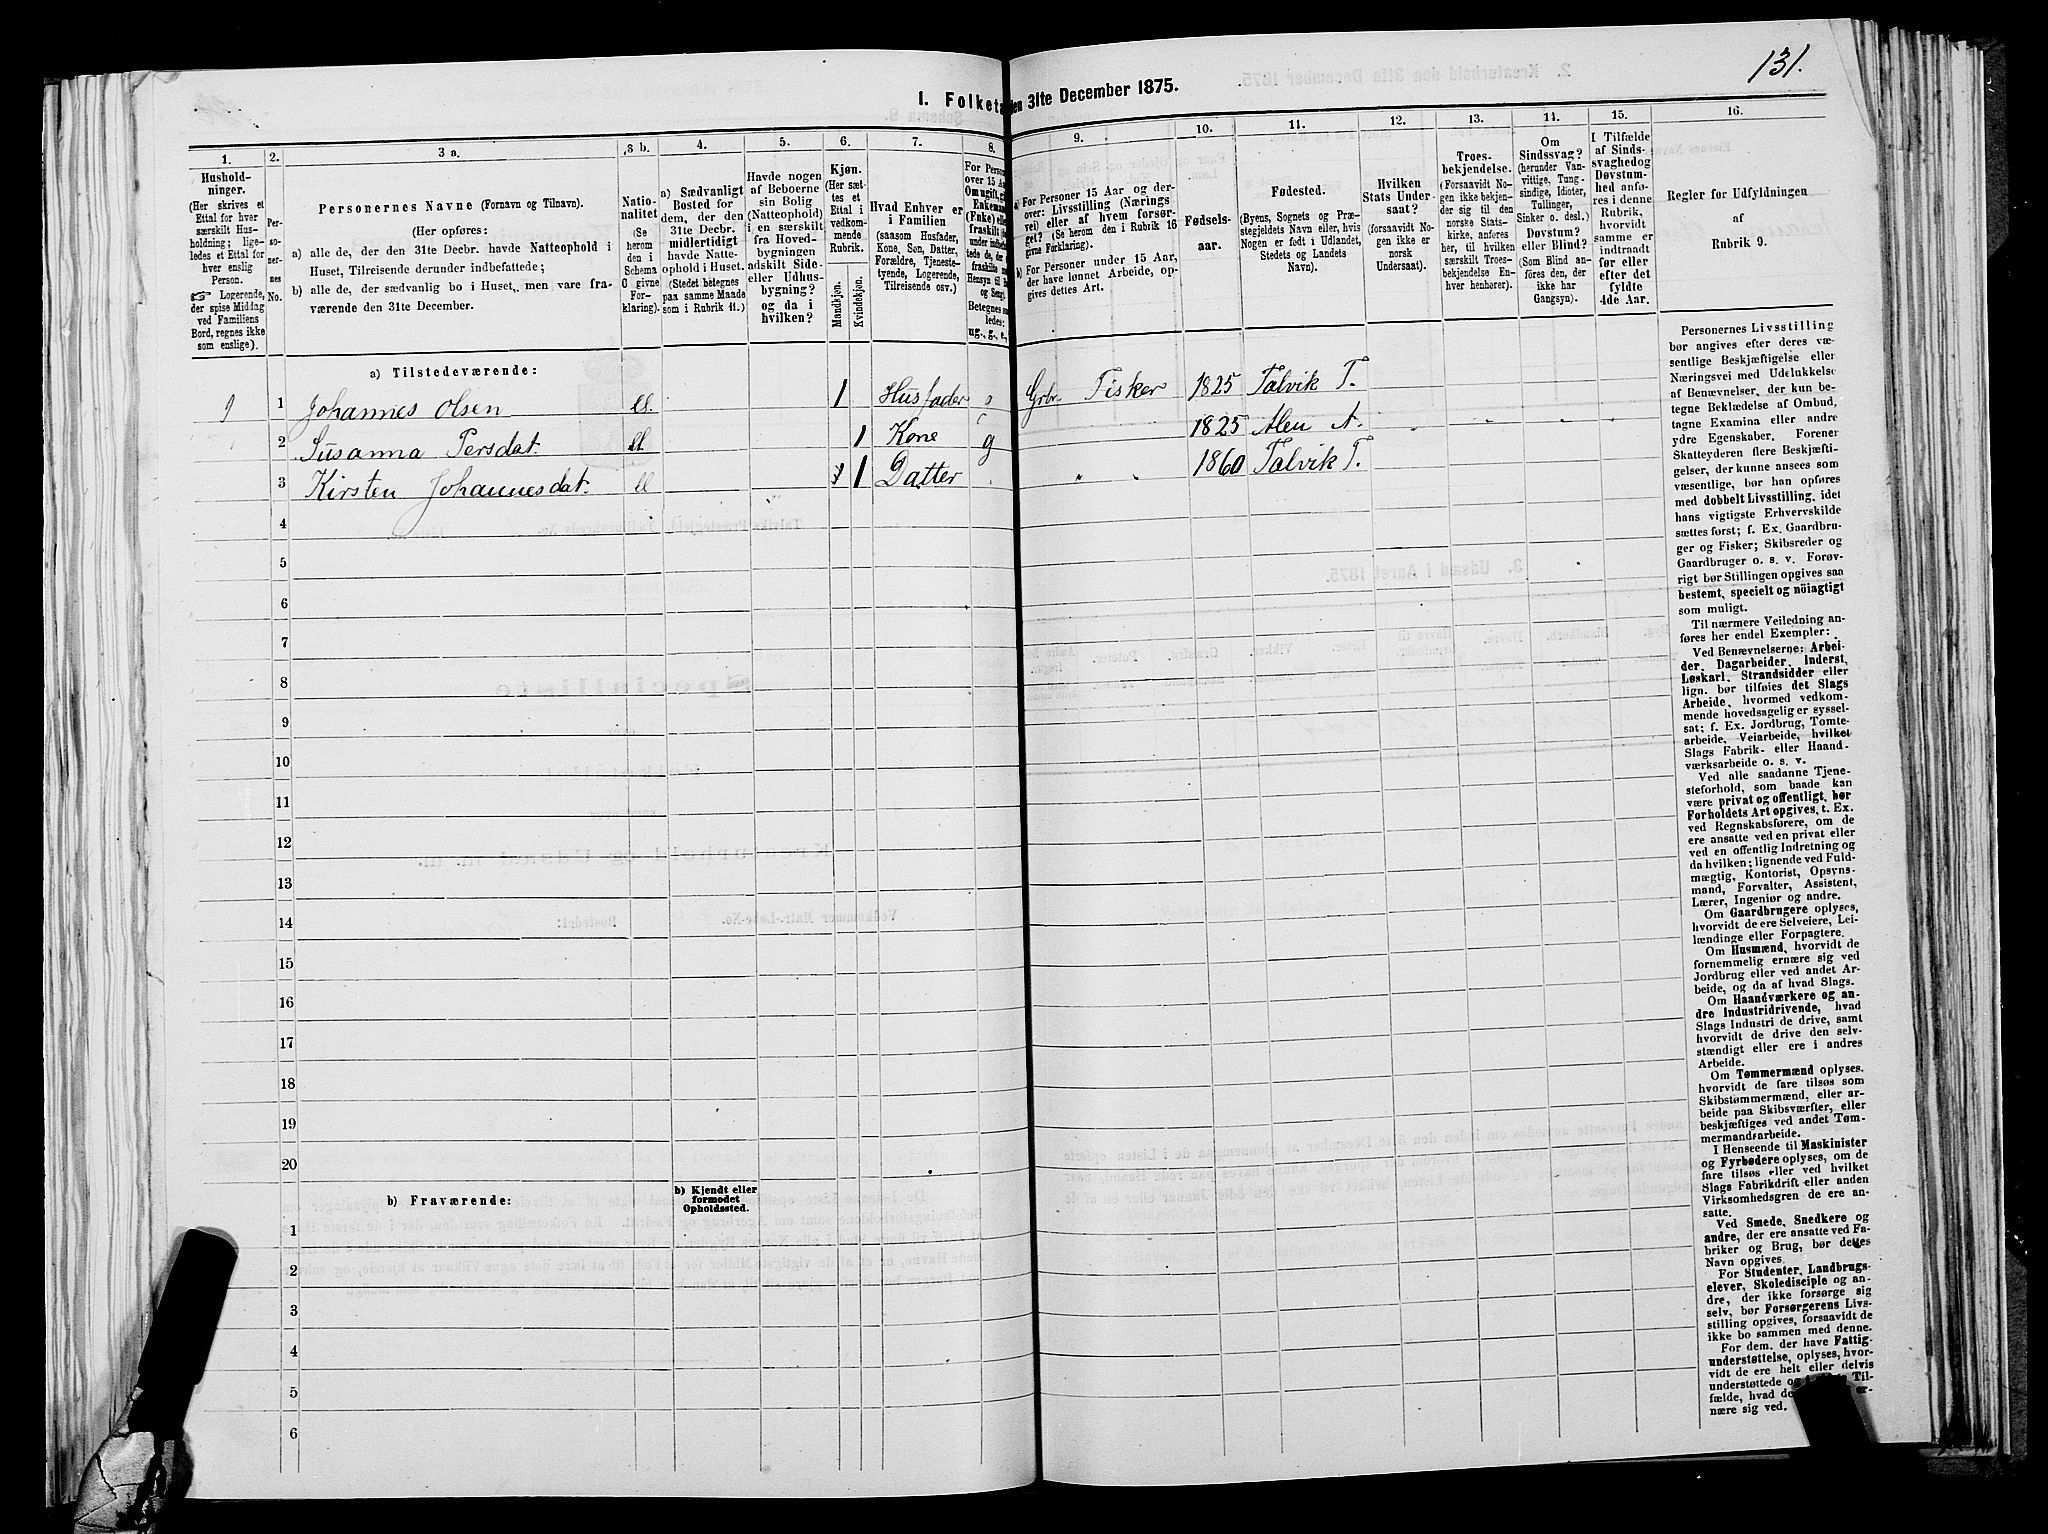 131.
I. Folketa
den 31te December 1875.
1. 2. 3 a. 3 b. 4. 5. 6. 7. 8. 9. 10. 11. 12. 13. 14. 15. 16.
Hushold-
ninger.
(Her skrives et
Ettal for hver
særskilt Hus-
holdning; lige-
ledes et Ettal for
hver enslig
Person.
☞ Logerende,
der spise Middag
ved Familiens
Bord, regnes ikke
som enslige).
Per-
so-
ner-
nes
No.
Personernes Navne (Fornavn og Tilnavn).
(Her opføres:
a) alle de, der den 31te Decbr. havde Natteophold i
Huset, Tilreisende derunder indbefattede;
b) alle de, der sædvanlig bo i Huset, men vare fra-
værende den 31te December.
Natio-
nalitet
(Se
herom
den i
Schema
O givne
For-
klaring).
a) Sædvanligt
Bosted for
dem, der den
31te Decbr.
midlertidigt
havde Natte-
ophold i Huset.
(Stedet betegnes
paa samme Maade
som i Rubrik 11.)
Havde nogen
af Beboerne
sin Bolig
(Natteophold)
i en særskilt
fra Hoved-
bygningen
adskilt Side-
eller Udhus-
bygning?
og da i
hvilken?
Kjøn.
(Her sæt-
tes et
Ettal i
vedkom-
mende
Rubrik.
Mandkjøn.
Kvindekjøn.
Hvad Enhver er
i Familien
(saasom Husfader,
Kone, Søn, Datter,
Forældre, Tjeneste-
tyende, Logerende,
Tilreisende osv.)
For Person
over 15 Aa
Om ugift, g
Enkeman
(Enke) elle
fraskilt
under indbe
tede de, de
fraskilte m
Hensyn til B
og Seng.
Betegnes sa
ledes:
ug., g., e.,
a) For Personer 15 Aar og der-
over: Livsstilling (Nærings
vei) eller af hvem forsør-
get? (Se herom den i Rubrik 16
givne Forklaring).
b) For Personer under 15 Aar,
der have lønnet Arbeide, op-
gives dettes Art.
Fødsels-
aar.
Fødested.
(Byens, Sognets og Præ-
stegjeldets Navn eller, hvis
Nogen er født i Udlandet,
Stedets og Landets
Navn).
Hvilken
Stats Under-
saat?
(forsaavidt No-
gen ikke er
norsk
Undersaat).
Troes-
bekjendelse.
(Forsaavidt No-
gen ikke bekjen-
der sig til den
norske Stats-
kirke, anføres
her, til hvilken
særskilt Troes-
bekjendelse En-
hver henhører).
Om
Sindssvag?
(herunder Van-
vittige, Tung-
sindige, Idioter,
Tullinger,
Sinker o. desl.)
Døvstum?
eller Blind?
(Som Blind an-
føres den, der
ikke har
Gangsyn).
I Tilfælde
af Sinds-
svaghedog
Døvstum-
hed anfø-
res i denne
Rubrik,
hvorvidt
samme er
indtraadt
før eller
efter det
fyldte
4de Aar.
Regler for Udfyldningen
af
Rubrik 9.
a) Tilstedeværende:
1 Johannes Olsen 1 Husfader Grbr. Fisker 1825 Talvik T.
2 Susanna Persdat. 1 Kone g 1825 Alen A.
3 Kirsten Johannesdat. 1 Datter " " 1860 Talvik T.
4
5
6
7
8
9
10
11
12
13
14
15
16
17
18
19
20
b) Fraværende:
b) Kjendt eller
formodet
Opholdssted.
1
2
3
4
5
6
Personernes Livsstilling
bør angives efter deres væ-
sentlige Beskjæftigelse eller
Næringsvei med Udelukkelse
af Benævnelser, der kun be-
tegne Beklædelse af Ombud,
tagne Examina eller andre
ydre Egenskaber. Forener
Skatteyderen flere Beskjæfti-
gelser, der kunne ansees som
væsentlige, bør han opføres
med dobbelt Livsstilling, idet
hans vigtigste Erhvervskilde
sættes først; f. Ex. Gaardbru-
ger og Fisker; Skibsreder og
Gaardbruger o. s. v. Forøv-
rigt bør Stillingen opgives saa
bestemt, specielt og nöiagtigt
som muligt.
Til nærmere Veiledning an-
føres her endel Exempler:
Ved Benævnelserne: Arbei-
der, Dagarbeider, Inderst,
Løskarl, Strandsidder eller
lign. bør tilføies det Slags
Arbeide, hvormed vedkom-
mende hovedsagelig er syssel-
sat; f. Ex. Jordbrug, Tomte-
arbeide, Veiarbeide, hvilket
Slags Fabrik- eller Haand-
værksarbeide o. s. v.
Ved alle saadanne Tjene-
steforhold, som baade kan
være privat og offentligt, bør
Forholdets Art opgives, t. Ex.
ved Regnskabsførere, om de
ere ansatte ved en privat eller
ved en offentlig Indretning og
da hvilken; lignende ved Fuld-
mægtig, Kontorist, Opsyns-
mand, Forvalter, Assistent,
Lærer, Ingeniør og andre.
Om Gaardbrugere oplyses,
hvorvidt de ere Selveiere, Lei-
lændinge eller Forpagtere.
Om Husmænd, hvorvidt de
fornemmelig ernære sig ved
Jordbrug eller ved andet Ar-
beide, og da af hvad Slags.
Om Haandværkere og an-
dre Industridrivende, hvad
Slags Industri de drive, samt
hvorvidt de drive den selv-
stændigt eller ere i andres
Arbeide.
Om Tømmermænd oplyses,
hvorvidt de fare tilsøs som
Skibstømmermænd, eller ar-
beide paa Skibsværfter, eller
beskjæftiges ved andet Tøm-
mermandsarbeide.
I Henseende til Maskinister
og Fyrbødere oplyses, om de
fare tilsøs eller ved hvilket
Slags Fabrikdrift eller anden
Virksomhedsgren de ere an-
satte.
Ved Smede, Snedkere og
andre, der ere ansatte ved Fa-
briker og Brug, bør dettes
Navn opgives.
For Studenter, Landbrugs-
elever, Skoledisciple og an-
dre, der ikke forsørge sig
selv, bør Forsørgerens Livs-
stilling opgives, forsaavidt de
ikke bo sammen med denne.
For dem, der have Fattig-
understøttelse, oplyses, hvor-
vidt de ere helt eller delvis
understøttede og
Til-
fælde, hvad de
er-
nære sig ved.